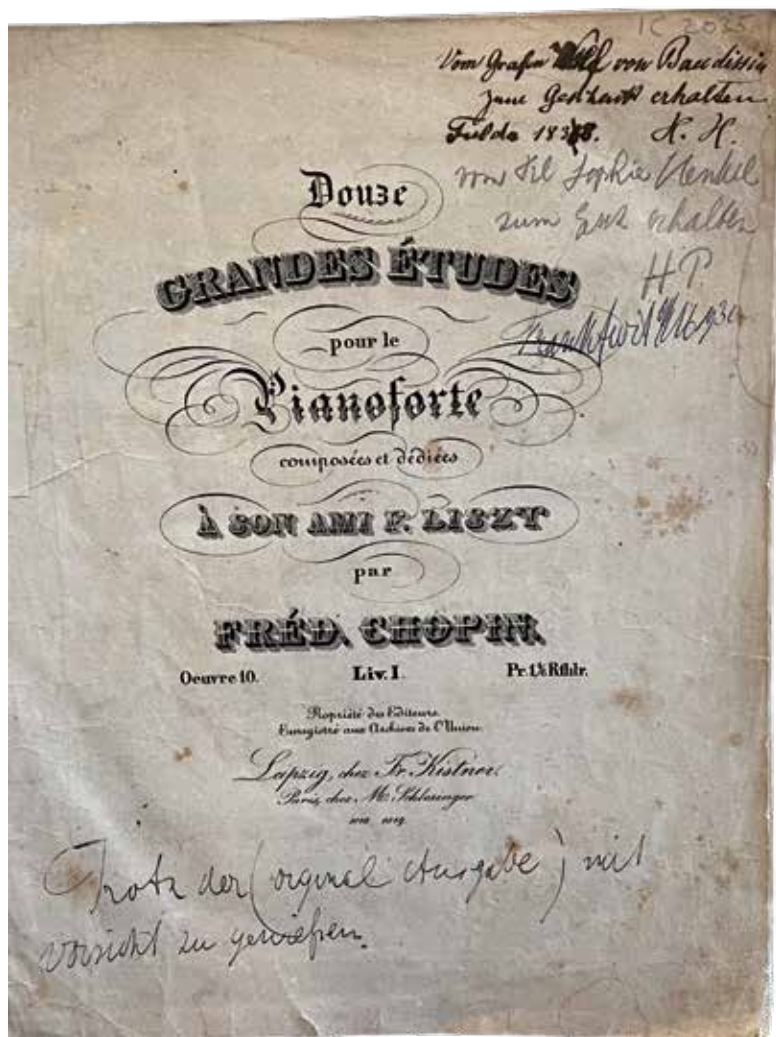 IC 2035
Vom Grafen Wolf von Baudissin
zum Geschenk erhalten
Fulda 1838. H. H.
von Frl Sophie Henkel
zum Gesk erhalten
H. P.
Frankfurt
Douze
GRANDES ÉTUDES
pour le
Pianoforte
composées et dédiées
À SON AMI F. LISZT
par
FRÉD. CHOPIN.
Oeuvre 10. Liv. I. Pr. Rthlr.
Propriété des Editeurs.
Enregistré aux Archives de l'Union.
Leipzig, chez Fr. Kistner.
Paris, chez M. Schlesinger
1018. 1019.
Trotz der (original Ausgabe) mit
Vorsicht zu genießen.